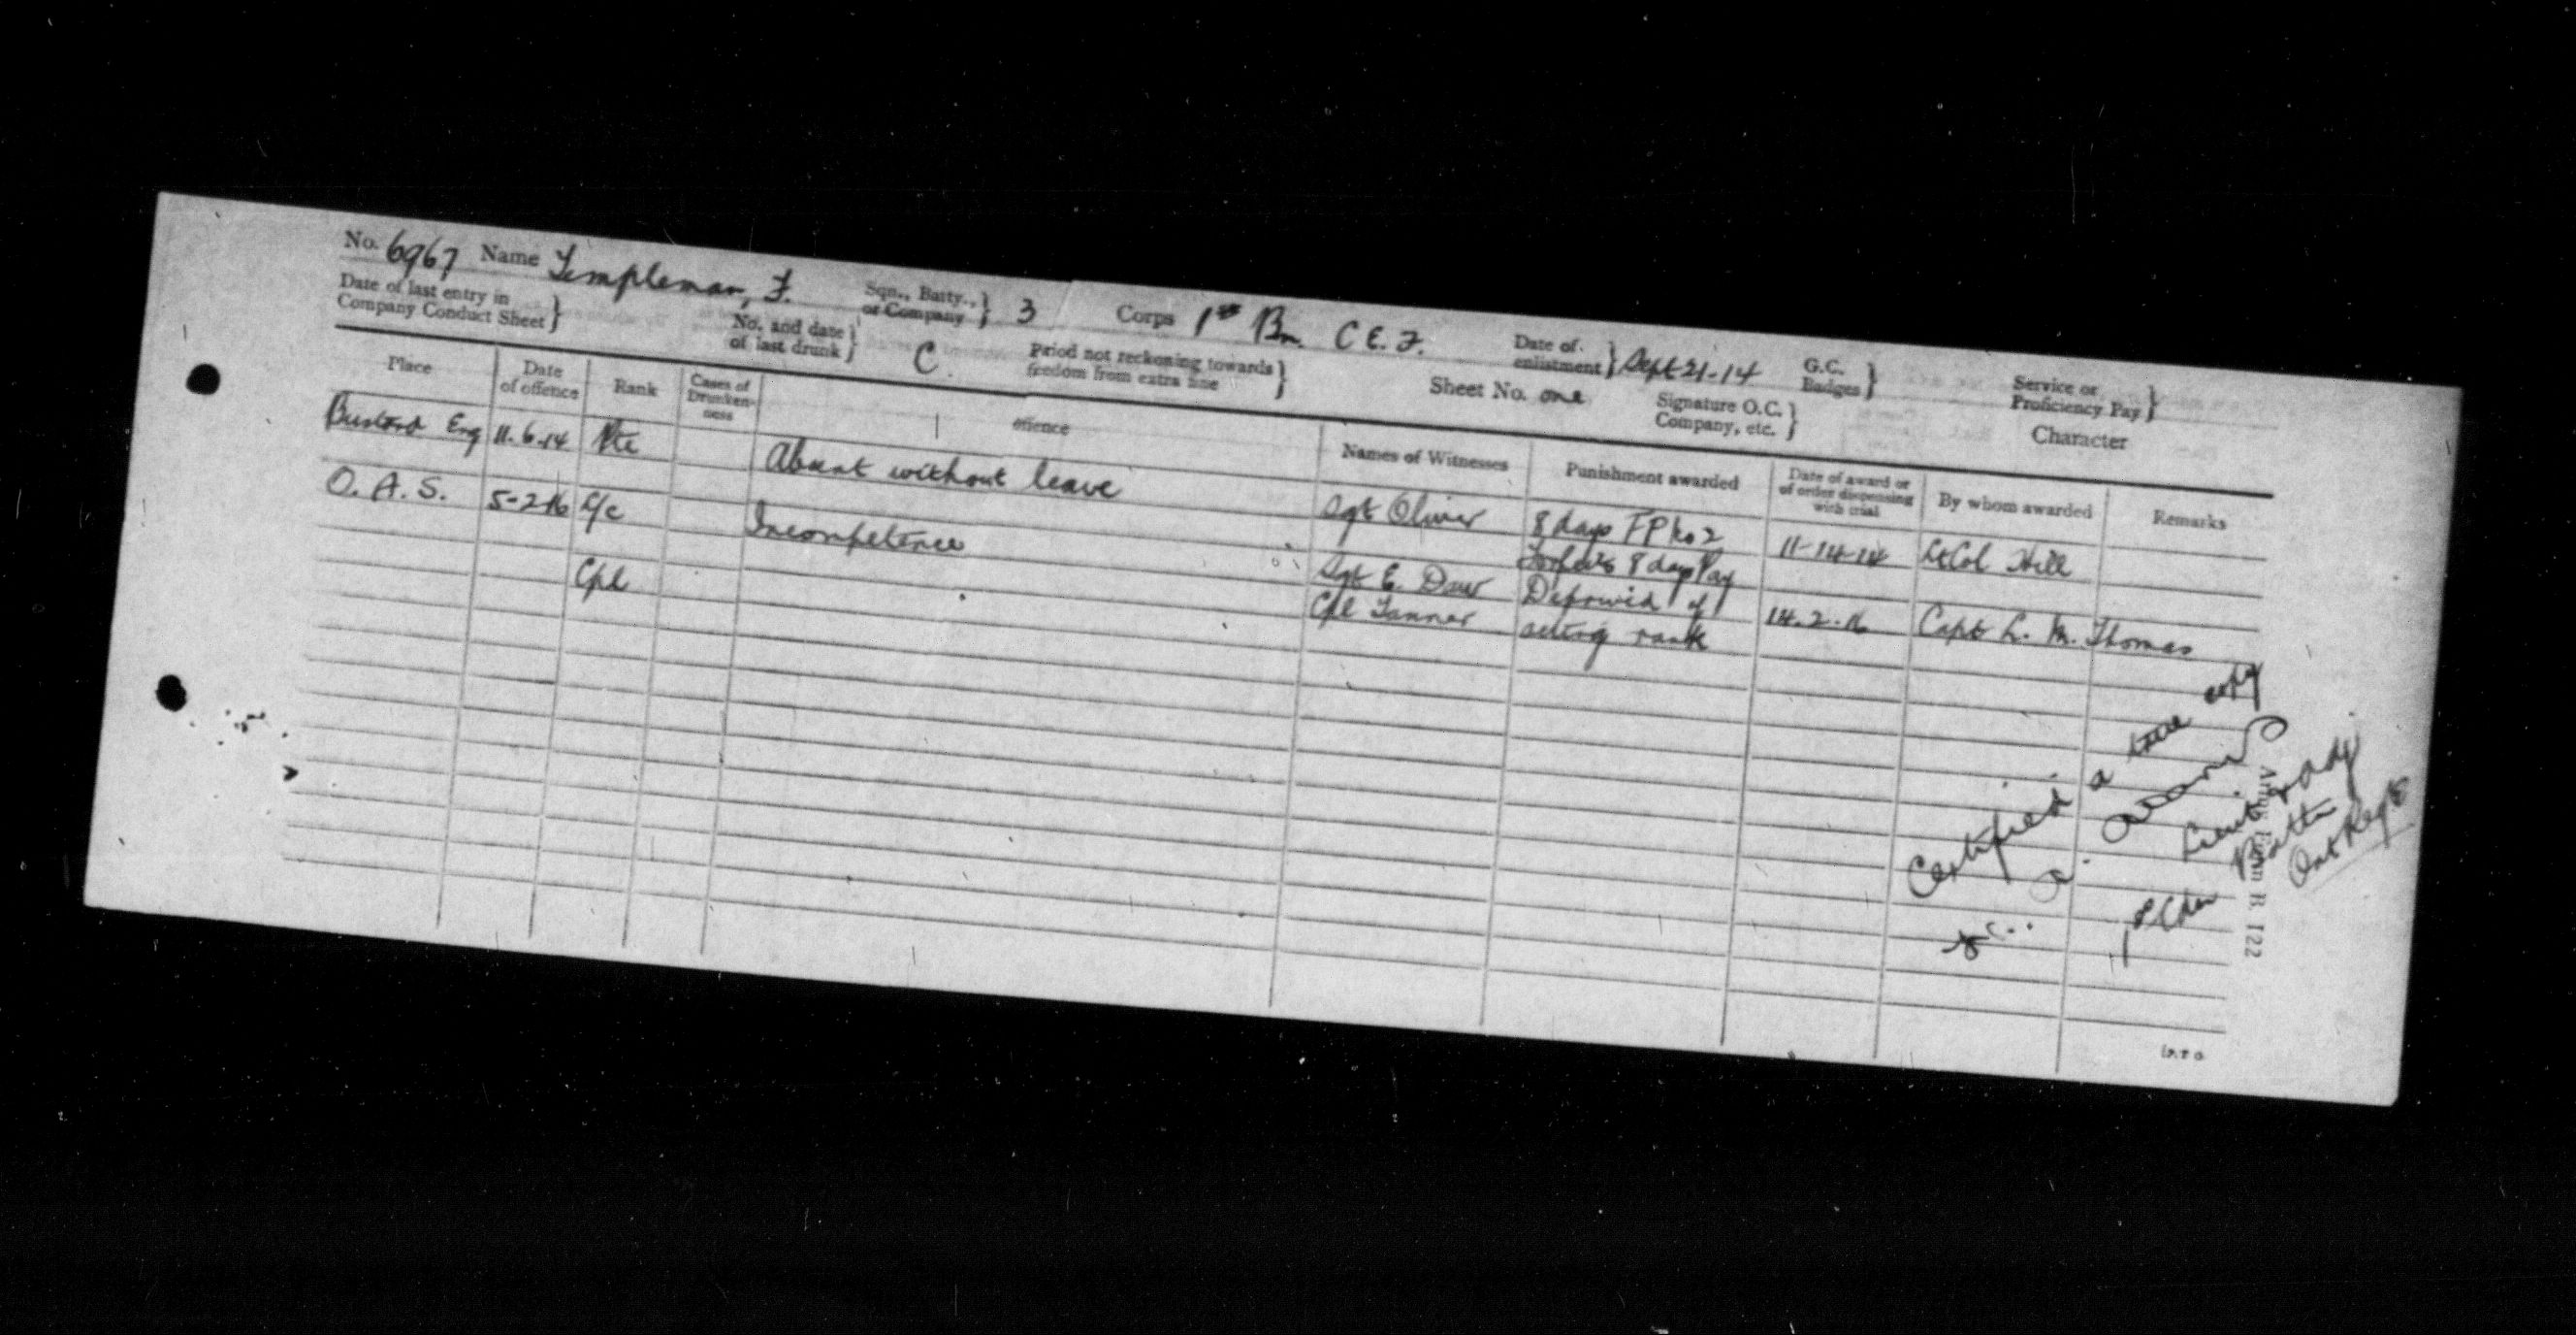 No. 6967 Name Templeman, F. Sqn., Batty., or Company } 3 Corps 1st Bn. C.E.F. Date of enlistment } Sept 21-14 G.C. Badges } Service or Proficiency Pay }
Date of last entry in Company Conduct Sheet } No. and date of last drunk } C. Period not reckoning towards freedom from extra fine } Sheet No. one Signature O.C. Company, etc. } Character
Place Date of offence Rank Cases of Drunkenness Offence Names of Witnesses Punishment awarded Date of award or of order dispensing with trial By whom awarded Remarks
Bustard Eng 11.6.14 Pte Absent without leave Sgt Oliver 8 days FP No 2 11-14-14 Lt Col Hill
Forfeits 8 days Pay
O. A. S. 5-2-16 L/c Incompetence Sgt E. Deprived of 14.2.16 Capt L. M. Thomas
Cpl Cpl Tanner acting rank
Certified a true copy
Lieut
Battn
Ont Regt
Army Form B. 122
(P.T.O.